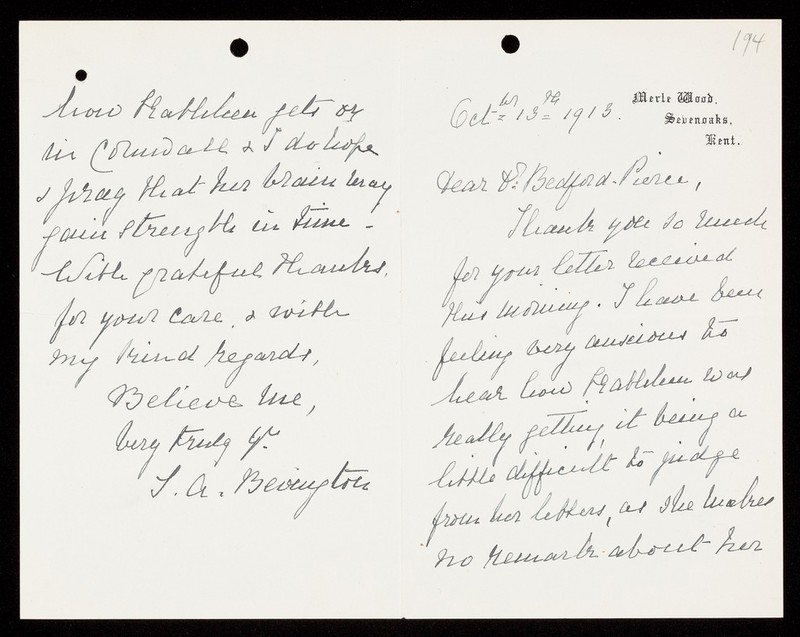 194
Merle Wood,
Sevenoaks,
Kent.
Octbr 13th 1913.
Dear Dr Bedford-Pierce,
Thank you so much
for your letter received
this morning. I have been
feeling very anxious to
hear how Kathleen was
really getting, it being a
little difficult to judge
from her letters, as she makes
no remark about her
how Kathleen gets on
in Cornwall & I do hope
& pray that her brain may
gain strength in time -
With grateful thanks,
for your care, & with
my kind regards,
Believe me,
Very truly yrs
S. A. Bevington